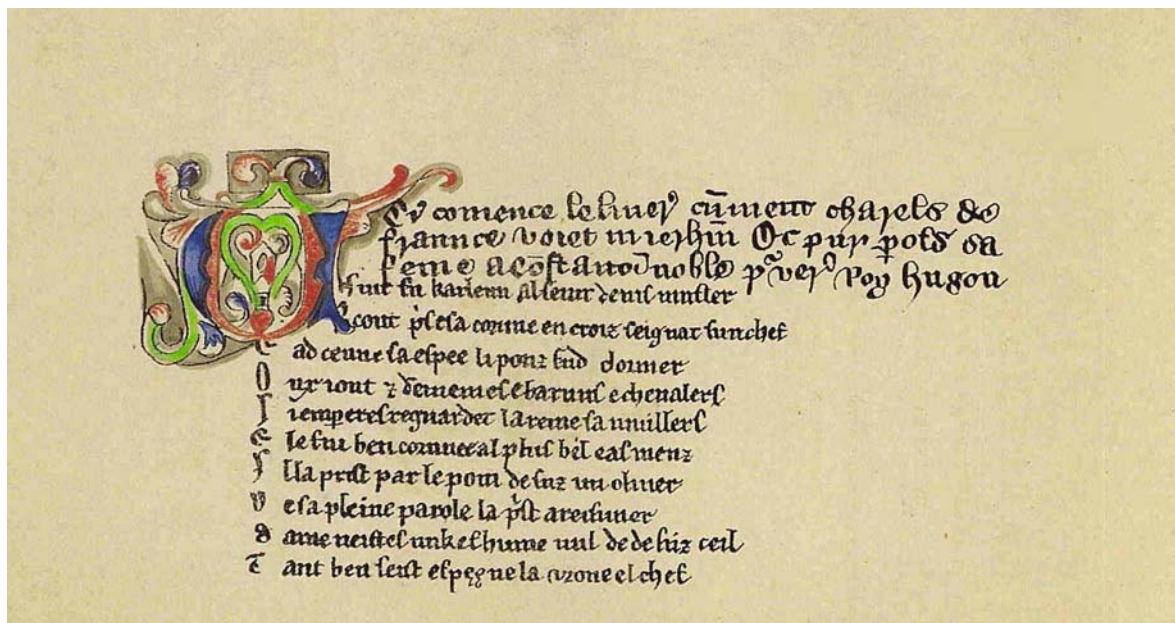 Ci comence le liuer cūment charels de
fraunce voiet in ierhīm Et pur pols sa
feme a Cōstantinoble p ver roy hugon
Un iur fu karleun al seint denis muster
R eout p̓se sa corune en croiz seignat sun chef
E ad ceinte sa espee li ponz fud dormer
D ux i out ⁊ demeines e baruns e cheualers
l i emperes reguardet la reine sa muillers
e le fut ben corunee al plus bel e as meuz
I l la prist par le poin desuz un oliuer
D e sa pleine parole la p̓st a reisuner
d ame ueistes unkes hume nul de desuz ceil
T ant ben seist espee ne la corone el chef